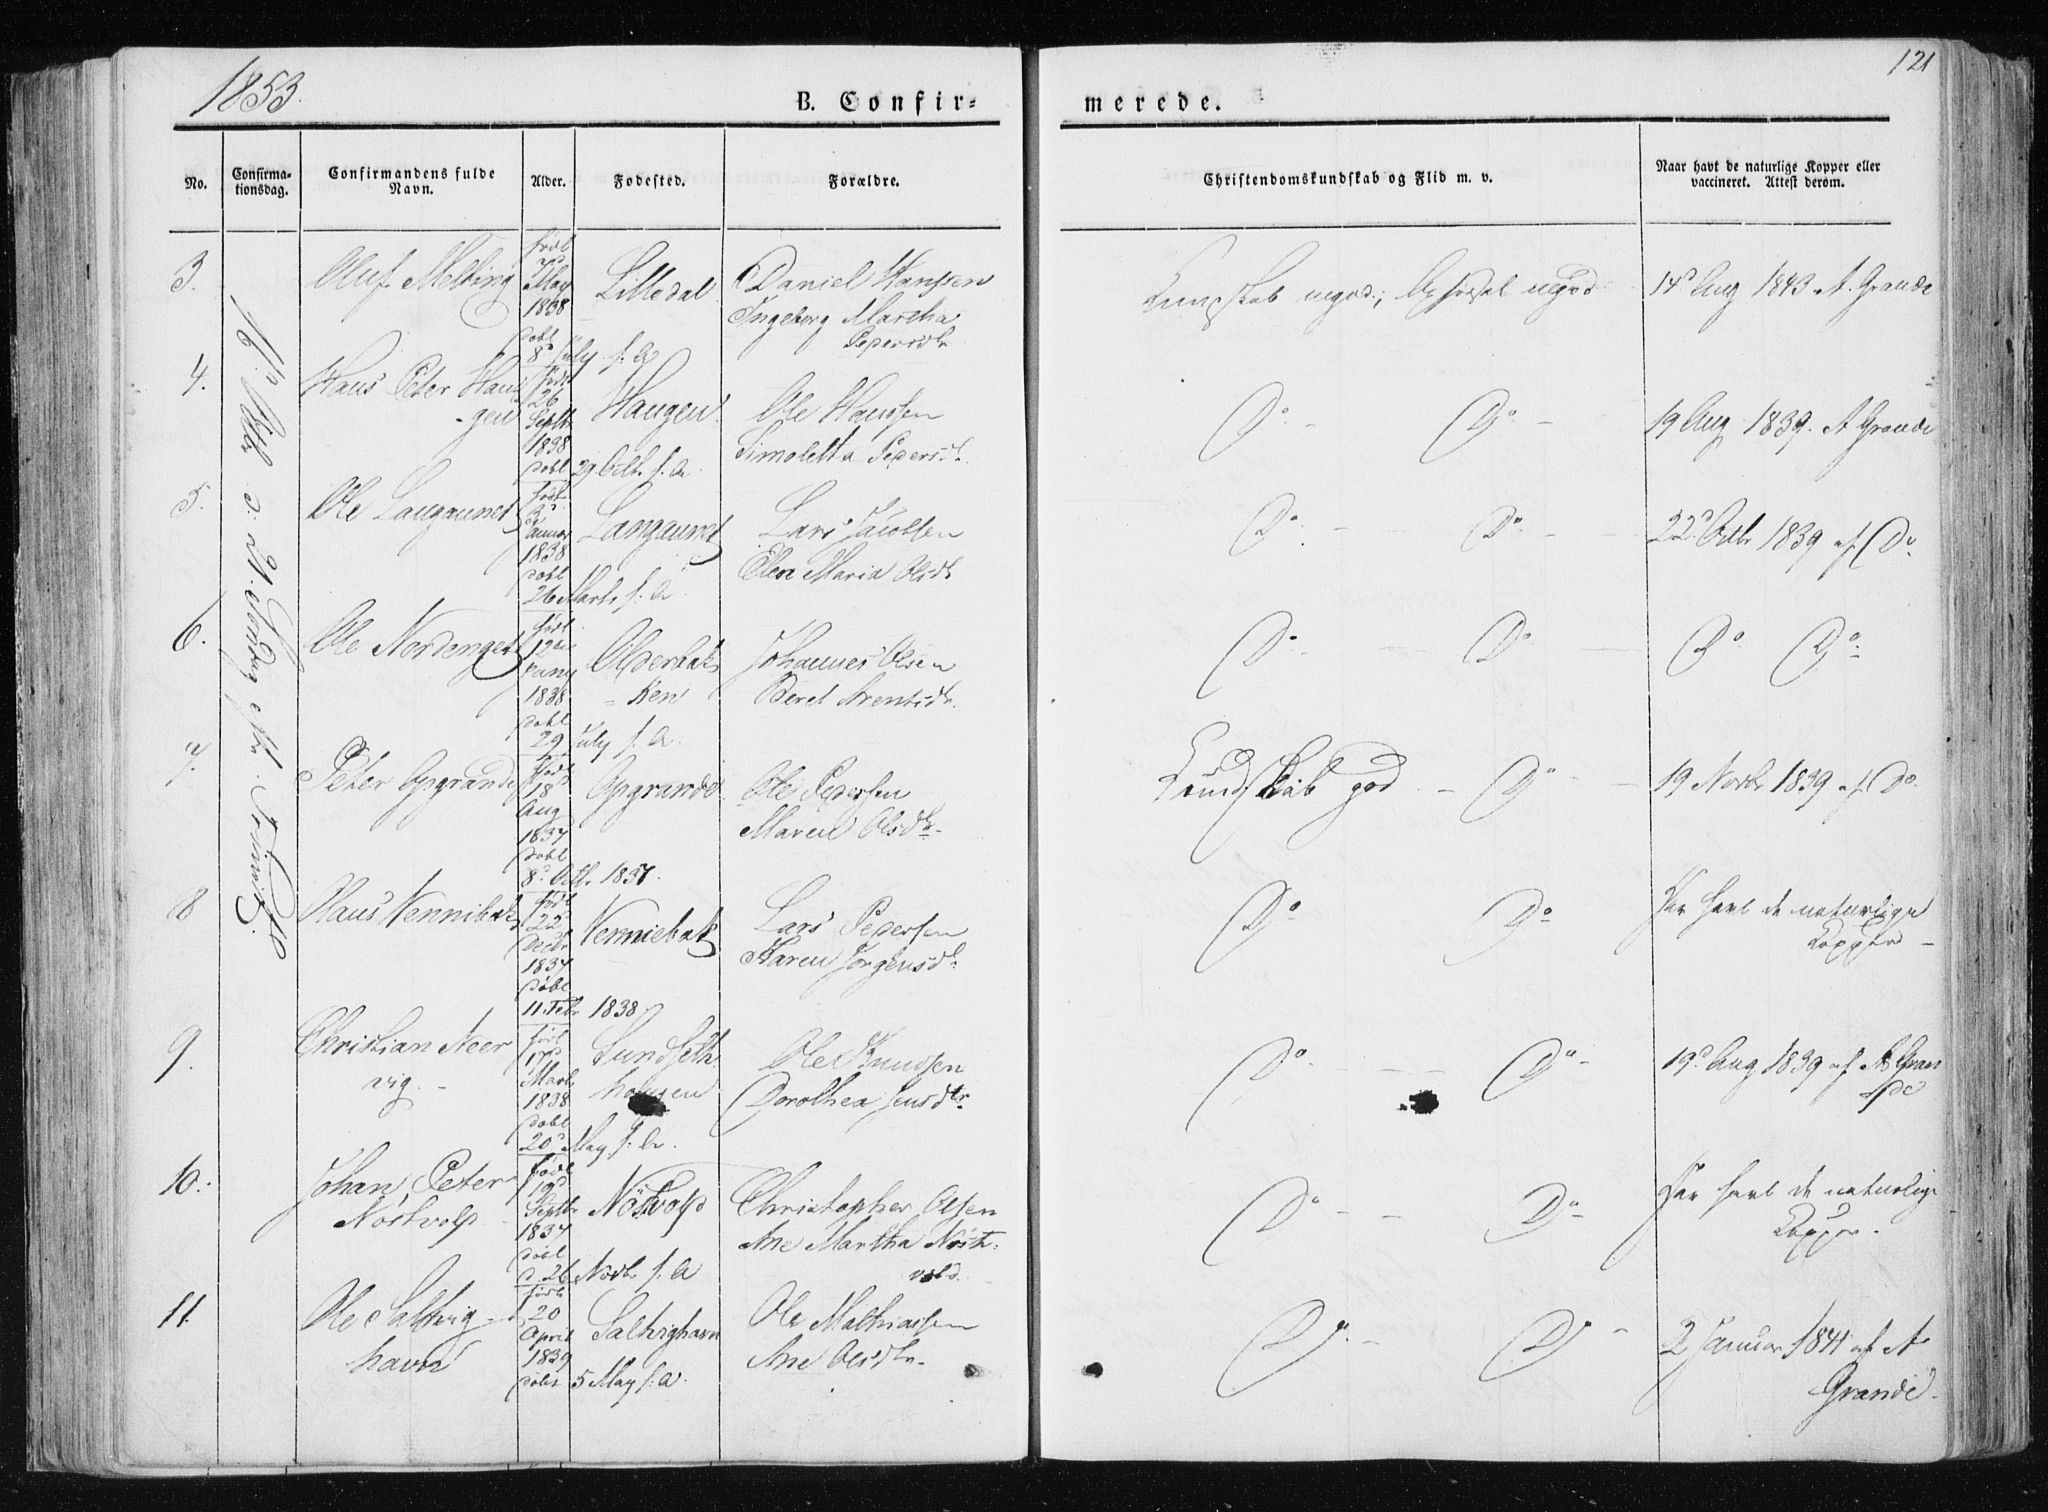 1853.
121
B. Confir=
merede.
No.
Confirma-
tionsdag.
Confirmandens fulde
Navn.
Alder.
Fodested.
Forældre.
Christendomskundskab og Flid m. v.
Naar havt de naturlige Kopper eller
vaccineret. Attest derom.
3.
Oluf Melting
født
May
1838
døbt
8de July s. A
Lilledal
Daniel Hanssen
Ingeborg Martha
Pedersdtr
Kundskab megod; Opførsel megod
14d Aug 1843 A. Grande
4.
Hans Peter Hau
-gen
født
26
Septbr
1838
døbt 29 Octbr s. A
Haugen
Ole Hanssen
Simoletta Pedersdtr
Do - Do -
19 Aug 1839. A Grande
5.
Ole Langaunet
født
Januar
1838
døbt
26 Marts s. A
Langaunet
Lars Jacobsen
Elen Maria Olsdtr
Do - Do -
22d Octbr 1839 af Do
6.
Ole Nordenget
født
19de
1838
døbt
29 July s. A.
Olderbak
= ken
Johannes Olsen
Beret Arentsdtr.
Do - Do
Do Do -
7.
Peter Opgrande
født
18d
Aug
1837
døbt
8d Octbr 1837.
Opgrande
Ole Pedersen
Maren Olsdtr.
Kundskab god - Do -
19 Novbr 1839 af Do.
8
Hans Vennibak
født
22
Decbr
1837
døbt
11 Febr 1838
Venniebak
Lars Pedersen
Karen Jørgensdtr
Do Do
Har havt de naturlige
Kopper -
9.
Christian Neer
vig. -
født
17d
Marts
1838
døbt
20d May s. A.
Sundseth
Ole Knudsen
Dorothea Jensdtr.
Do - - - Do -
19d Aug 1839 af A Gran
de
10.
Johan Peter
Nostvold
født
19d
Septbr
1837
døbt
d. 26 Novbr s. A
Nöstvold
Christopher Olsen
Ane Martha Nöst=
vold.
Do - - Do -
Har havt de naturlige
Kopper -
11.
Ole Saltvig -
havn
født
20
April
1839
døbt 5 May s. A.
Saltvighavn
Ole Mathiassen
Ane Olsdtr.
Do - Do -
2 Januar 1841 af A
Grande.